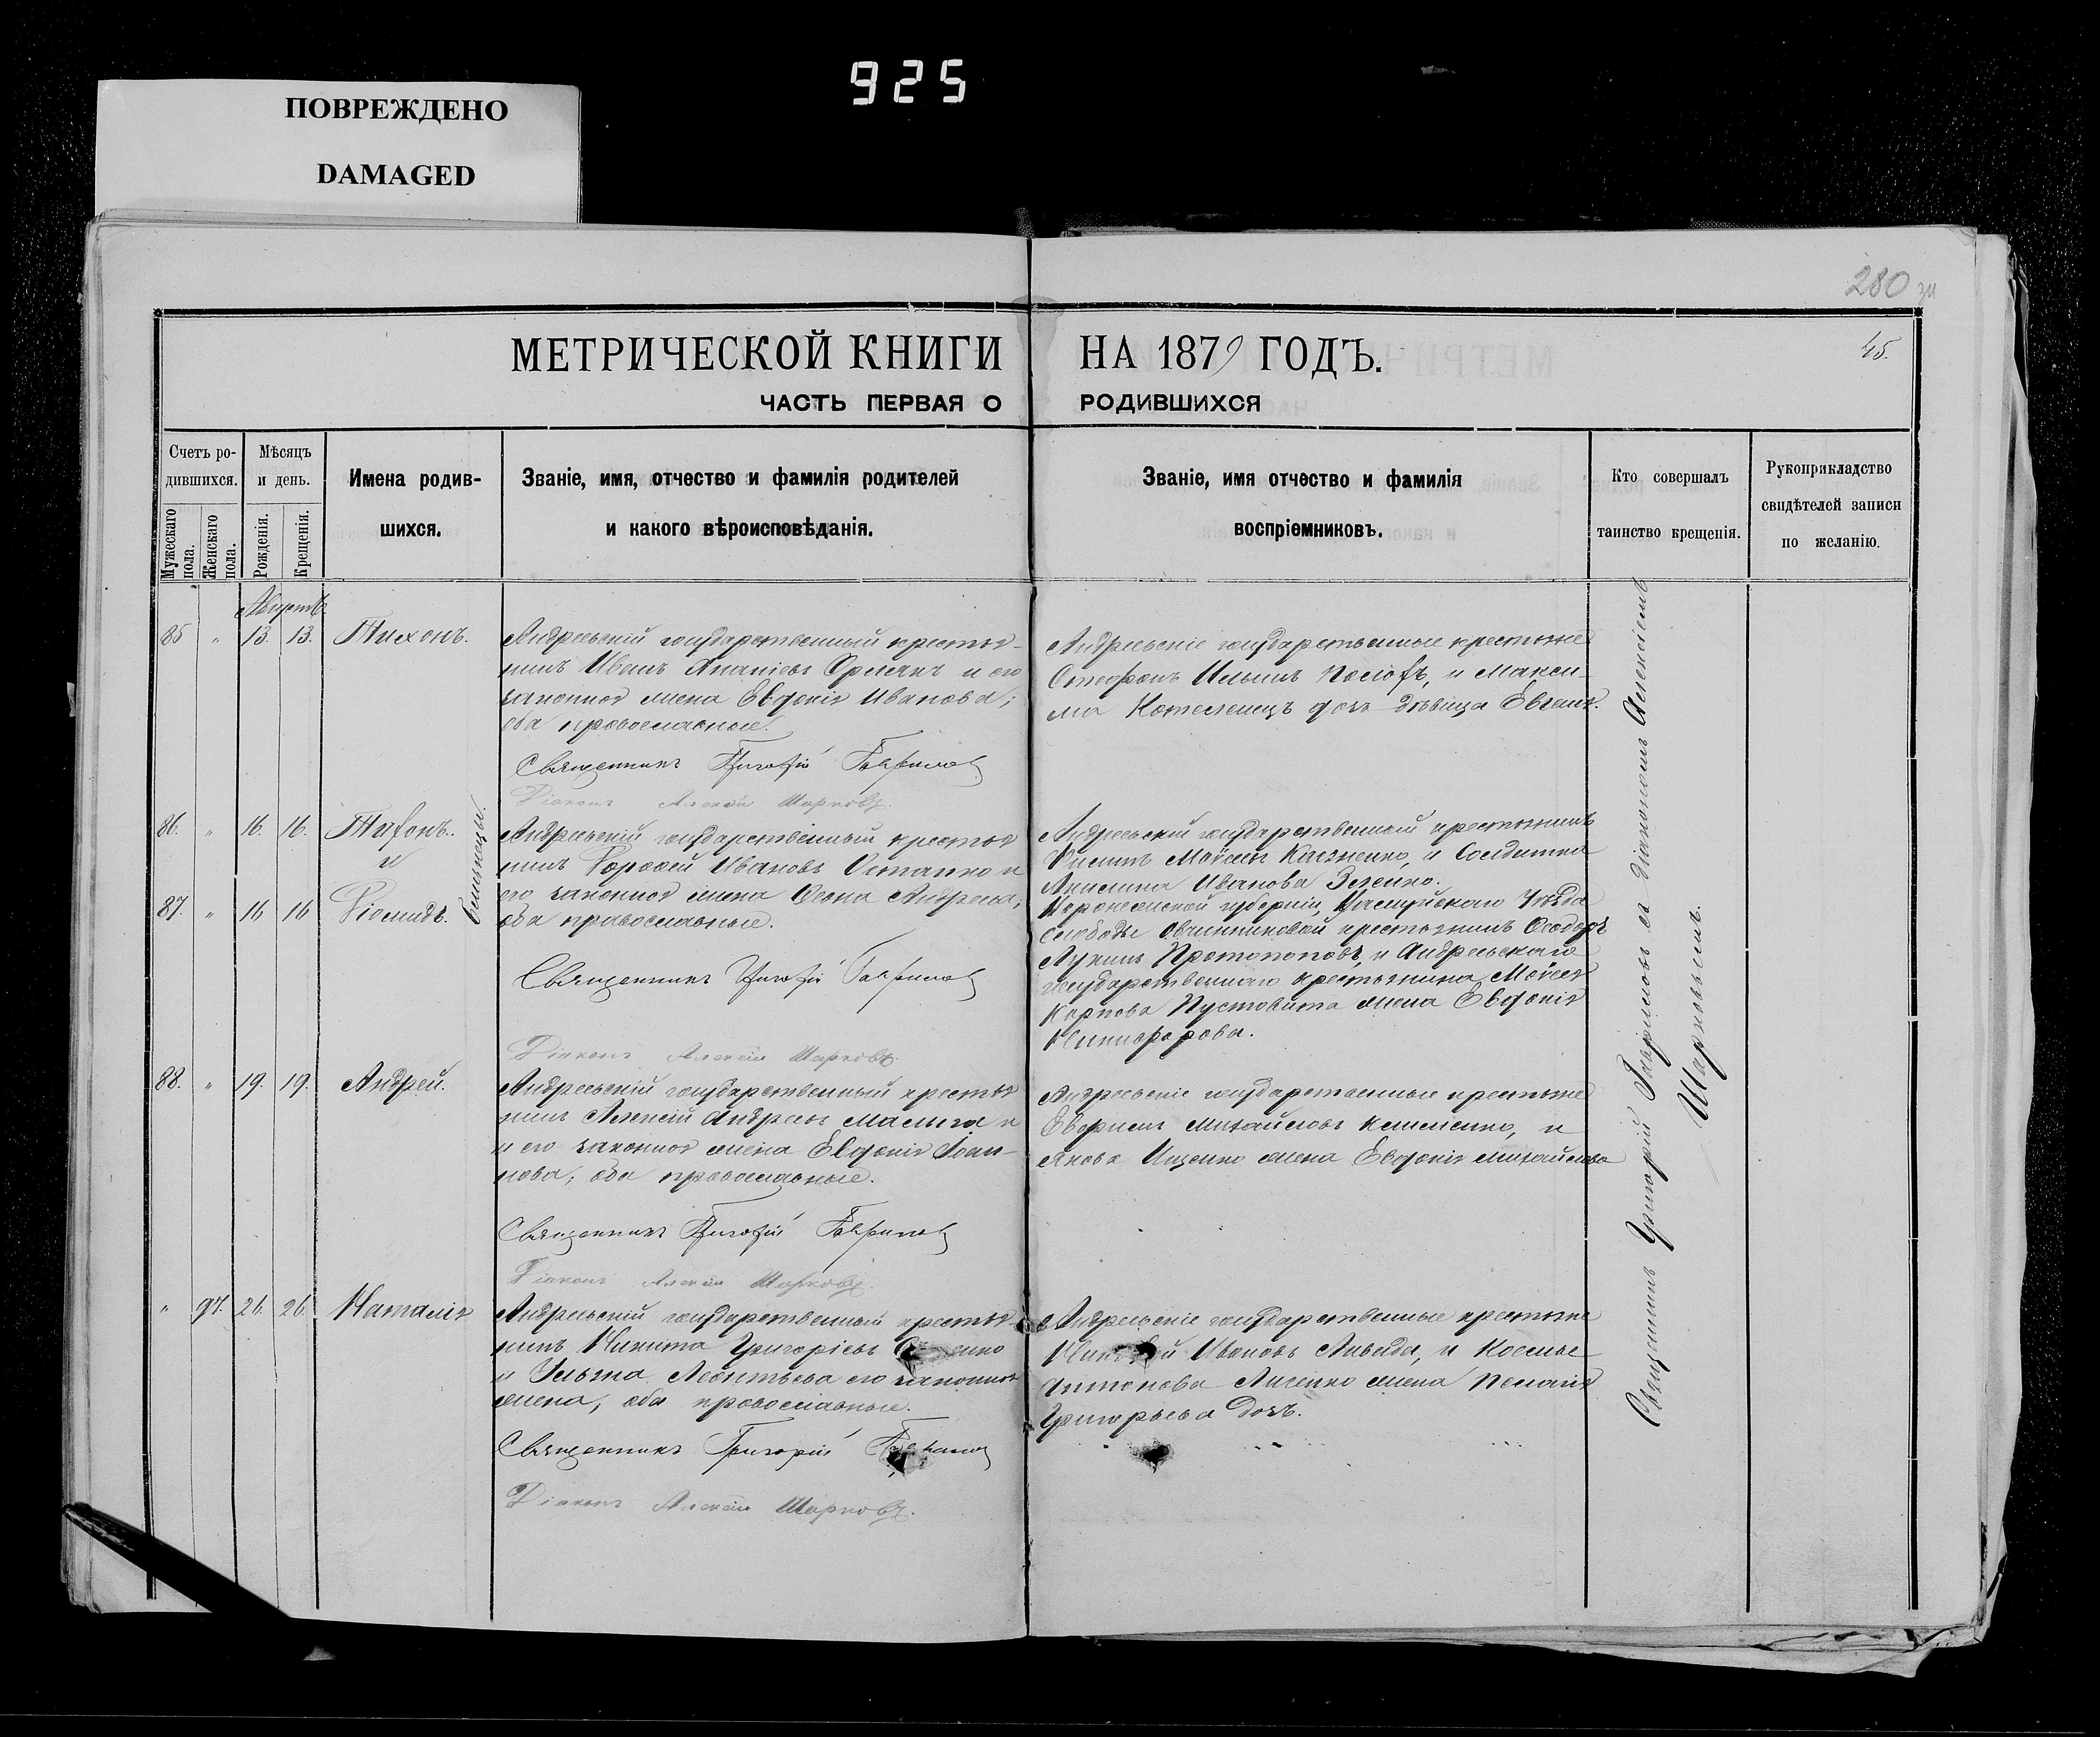 925
ПОВРЕЖДЕНО
DAMAGED
280
45.
МЕТРИЧЕСКОЙ КНИГИ НА 1879 ГОДЪ.
ЧАСТЬ ПЕРВАЯ О РОДИВШИХСЯ
Счетъ ро-
дившихся.
Мужескаго пола.
Женскаго пола.
Мѣсяцъ
и день.
Рожденія.
Крещенія.
Имена родив-
шихся.
Званіе, имя, отчество и фамилія родителей
и какого вѣроисповѣданія.
Званіе, имя отчество и фамилія
воспріемниковъ.
Кто совершалъ
таинство крещенія.
Рукоприкладство
свидѣтелей записи
по желанію.
Августъ
85 " 13. 13. Тихонъ.
Андреевскій государственный крестья-
нинъ Иванъ Ананіевъ и его
законная жена Евдокія Иванова;
оба православные.
Священникъ Григорій Гаврилов
Діаконъ Алексій Шарковъ.
Андреевскіе государственные крестьяне
Стефанъ Ильинъ и Макси-
ма дочь дѣвица
86. " 16. 16.
и
87. " 16 16
близнецы.
Андреевскій государственный крестья
нинъ Ивановъ Остапко и
его законная жена Анна Андреева;
оба православные.
Священникъ Григорій Гаврилов
Діаконъ Алексій Шарковъ.
Андреевскій государственный крестьянинъ
Филипъ Моѵсеевъ и Солдатка
Акилина Иванова Зеленко.
Воронежской губерніи, уѣзда
слободы Овчинниковой крестьянинъ Ѳеодоръ
Лукинъ Протопоповъ, и Андреевскаго
государственнаго крестьянина Моѵсея
Карпова Пустовита жена Евдокія
Никифорова.
88. " 19. 19. Андрей.
Андреевскій государственный крестья
нинъ Алексій Андреевъ и
и его законная жена Евдокія Іоан-
нова; оба православные.
Священникъ Григорій Гаврилов
Діаконъ Алексій Шарковъ.
Андреевскіе государственные крестьяне
Михайловъ и
Якова Ищенко жена Евдокія Михайлова
" 97. 26. 26. Наталія
Андреевскій государственный крестья-
нинъ Никита Григоріевъ
и Леонтьева его законная
жена, оба православные.
Священникъ Григорій
Діаконъ Алексій Шарковъ.
Андреевскіе государственные крестьяне
Ивановъ и Косьмы
Антонова Лисенко жена Пелагія
Григорьева дочь.
Священникъ Григорій Гавриловъ съ Діакономъ Алексіемъ
Шарковымъ.